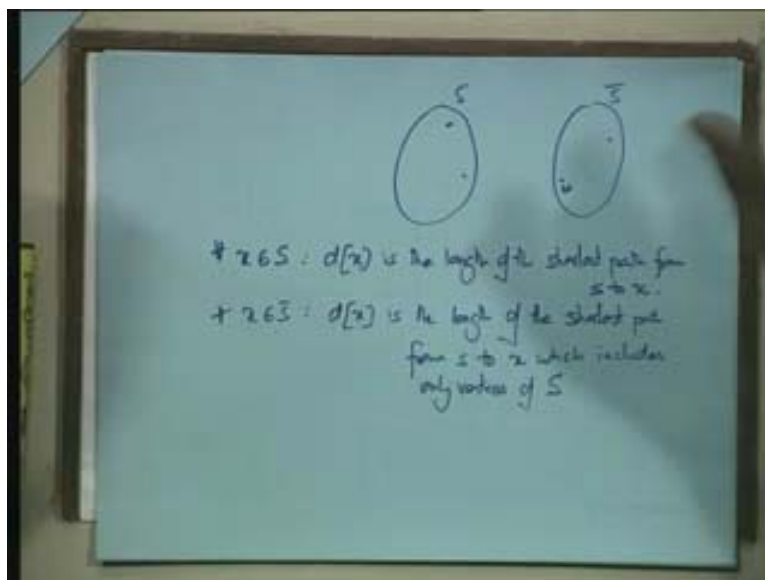 S S̅
* x ∈ S : d[x] is the length of the shortest path from
s to x.
* x ∈ S̅ : d[x] is the length of the shortest path
from s to x which includes
only vertices of S